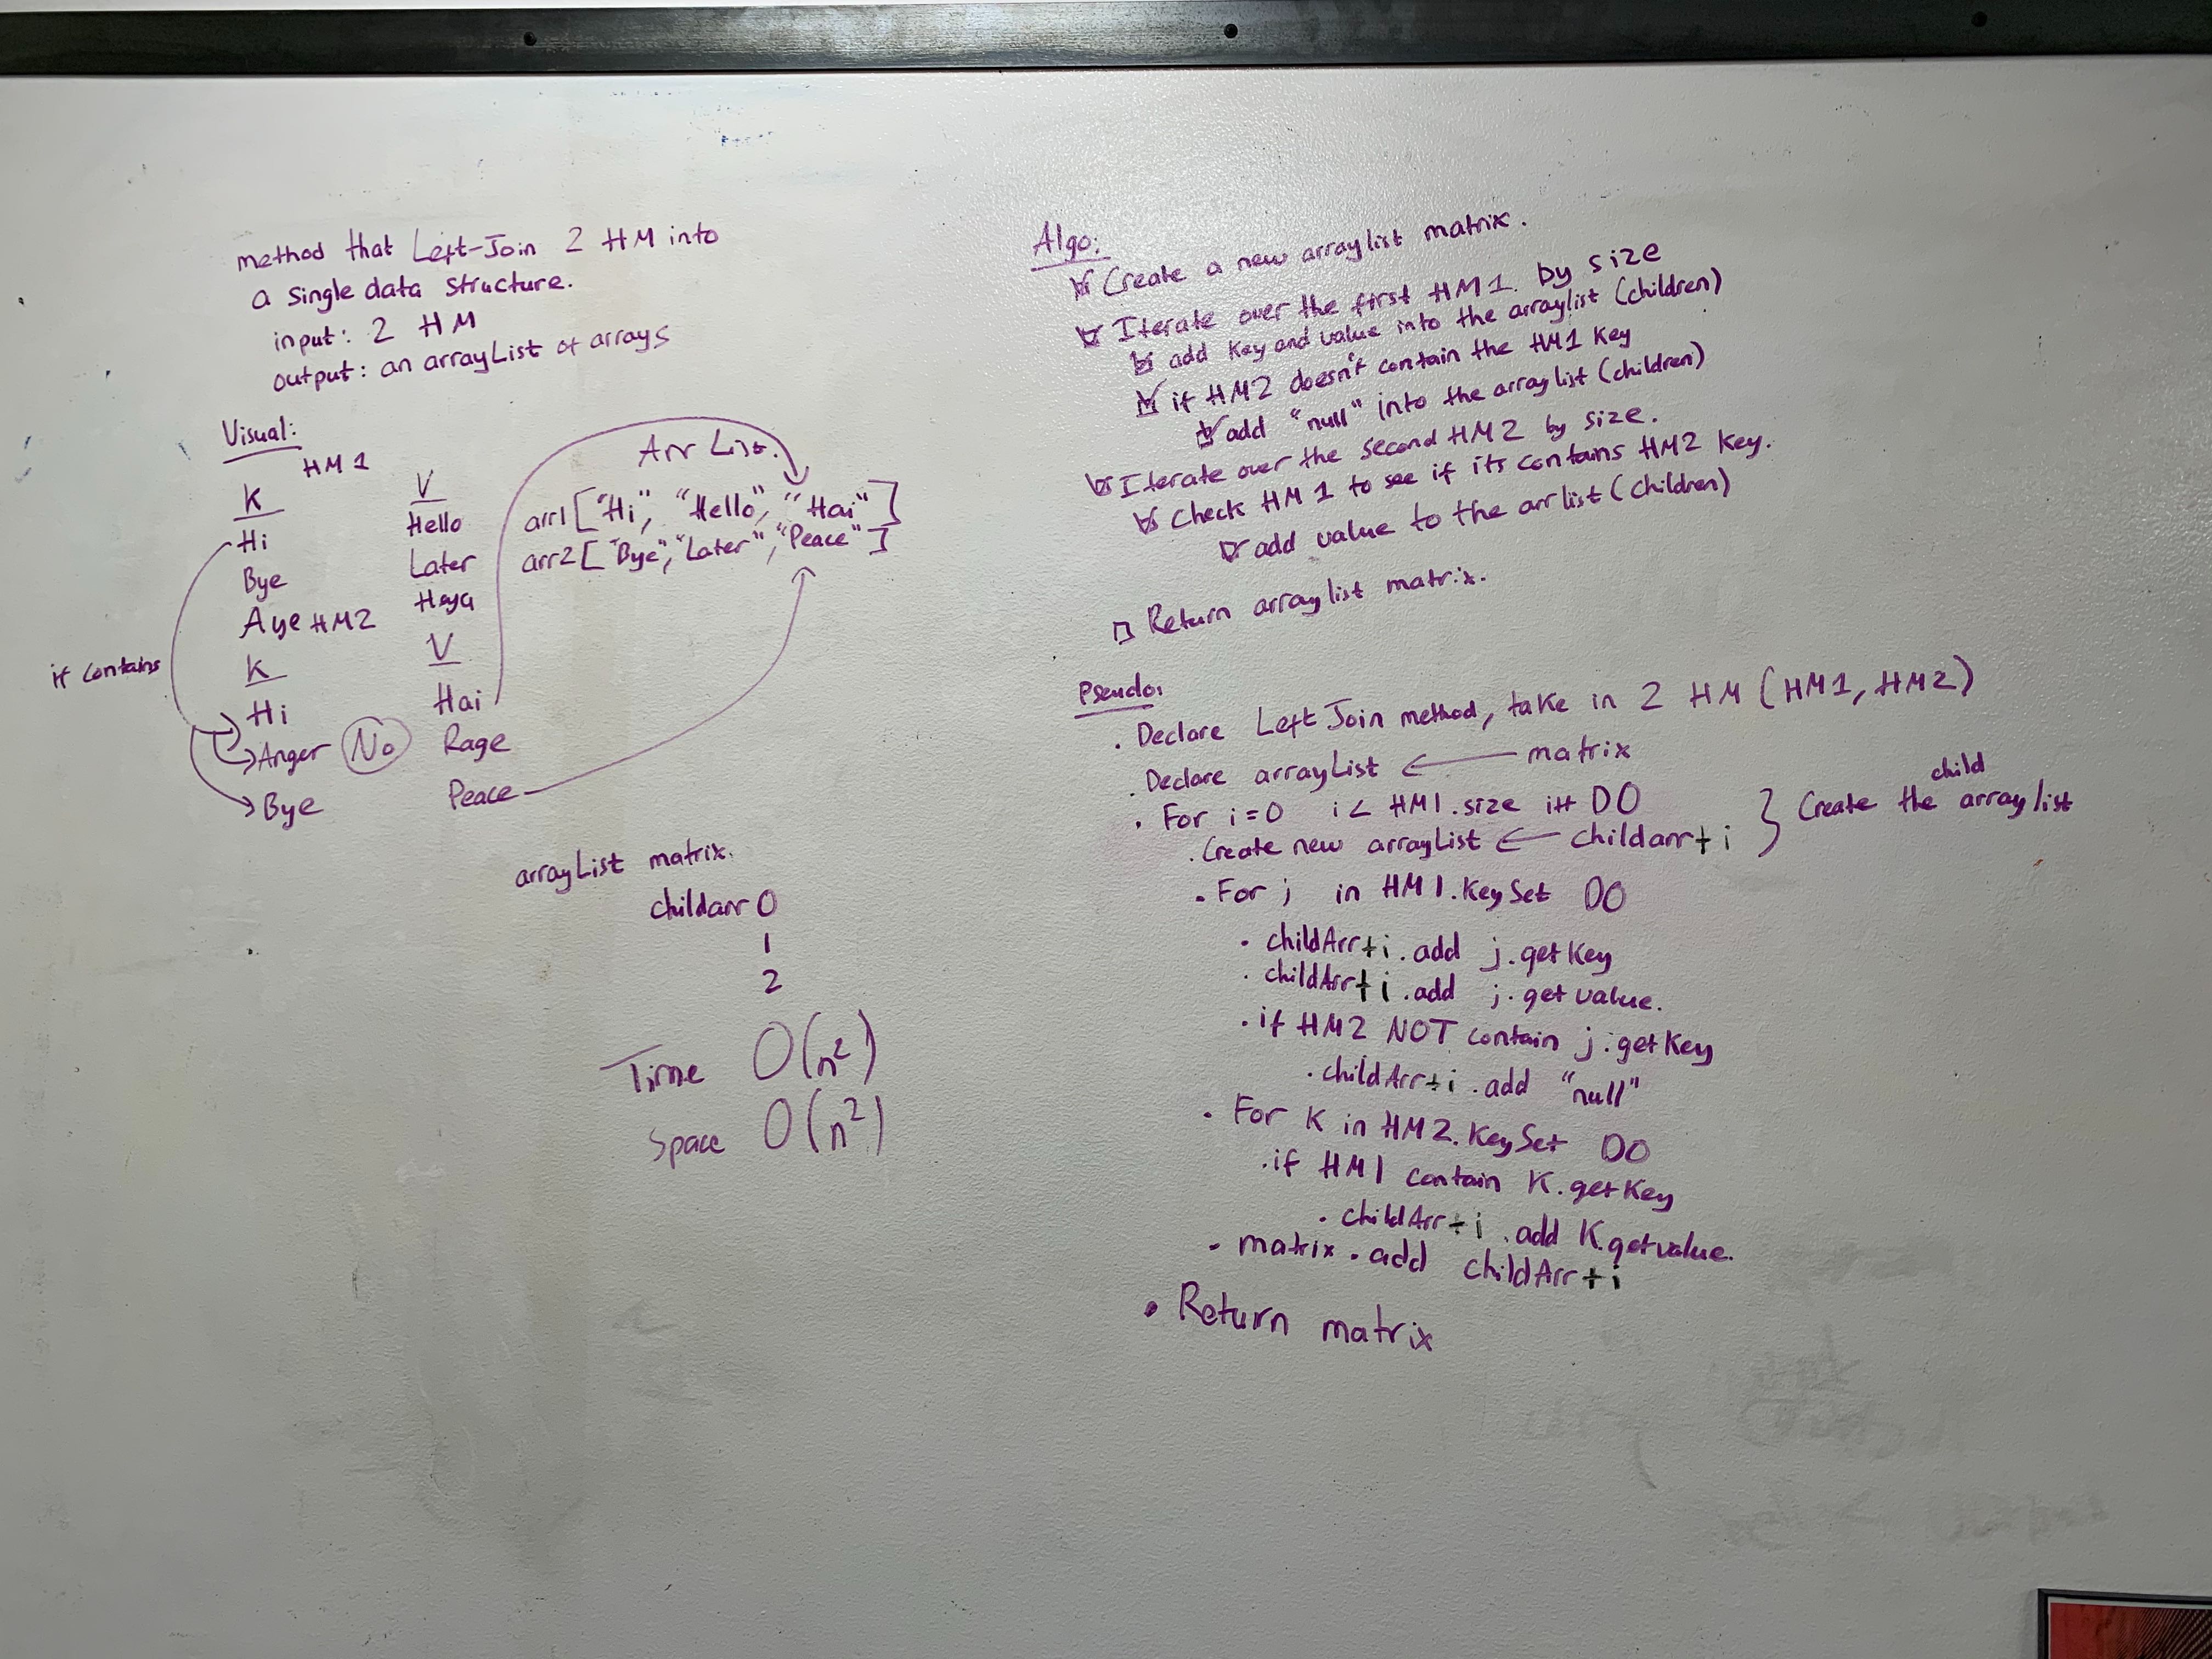 method that Left-Join 2 HM into
a single data structure.
input: 2 HM
output: an arrayList of arrays
Visual:
HM1
K V
Hi Hello
Bye Later
Aye Heya
HM2
K V
if contains
Hi Hai
Anger No Rage
Bye Peace
Arr List.
arr1["Hi", "Hello", "Hai"]
arr2["Bye", "Later", "Peace"]
arrayList matrix.
childarr 0
1
2
Time O(n²)
Space O(n²)
Algo:
Create a new arraylist matrix.
Iterate over the first HM1. by size
add key and value into the arraylist (children)
if HM2 doesn't contain the HM1 key
add "null" into the arraylist (children)
Iterate over the second HM2 by size.
Check HM1 to see if its contains HM2 key.
add value to the arrlist (children)
Return arraylist matrix.
Pseudo:
. Declare Left Join method, take in 2 HM (HM1, HM2)
. Declare arrayList ← matrix
. For i=0 i < HM1.size i++ DO
. Create new arrayList ← childarr+i } Create the child arraylist
. For j in HM1.KeySet DO
. childArr+i.add j.getKey
. childArr+i.add j.getvalue.
. if HM2 NOT contain j.getKey
. childArr+i.add "null"
. For K in HM2.KeySet DO
. if HM1 contain K.getKey
. childArr+i.add K.getvalue.
. matrix.add childArr+i
. Return matrix